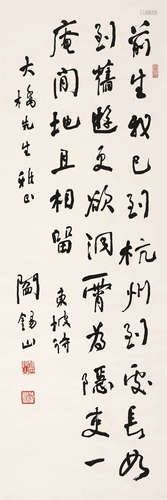 前生我已到杭州到處長如
到舊遊更欲洞霄為隱吏一
庵閒地且相留 東坡詩
大橋先生雅正
閻錫山